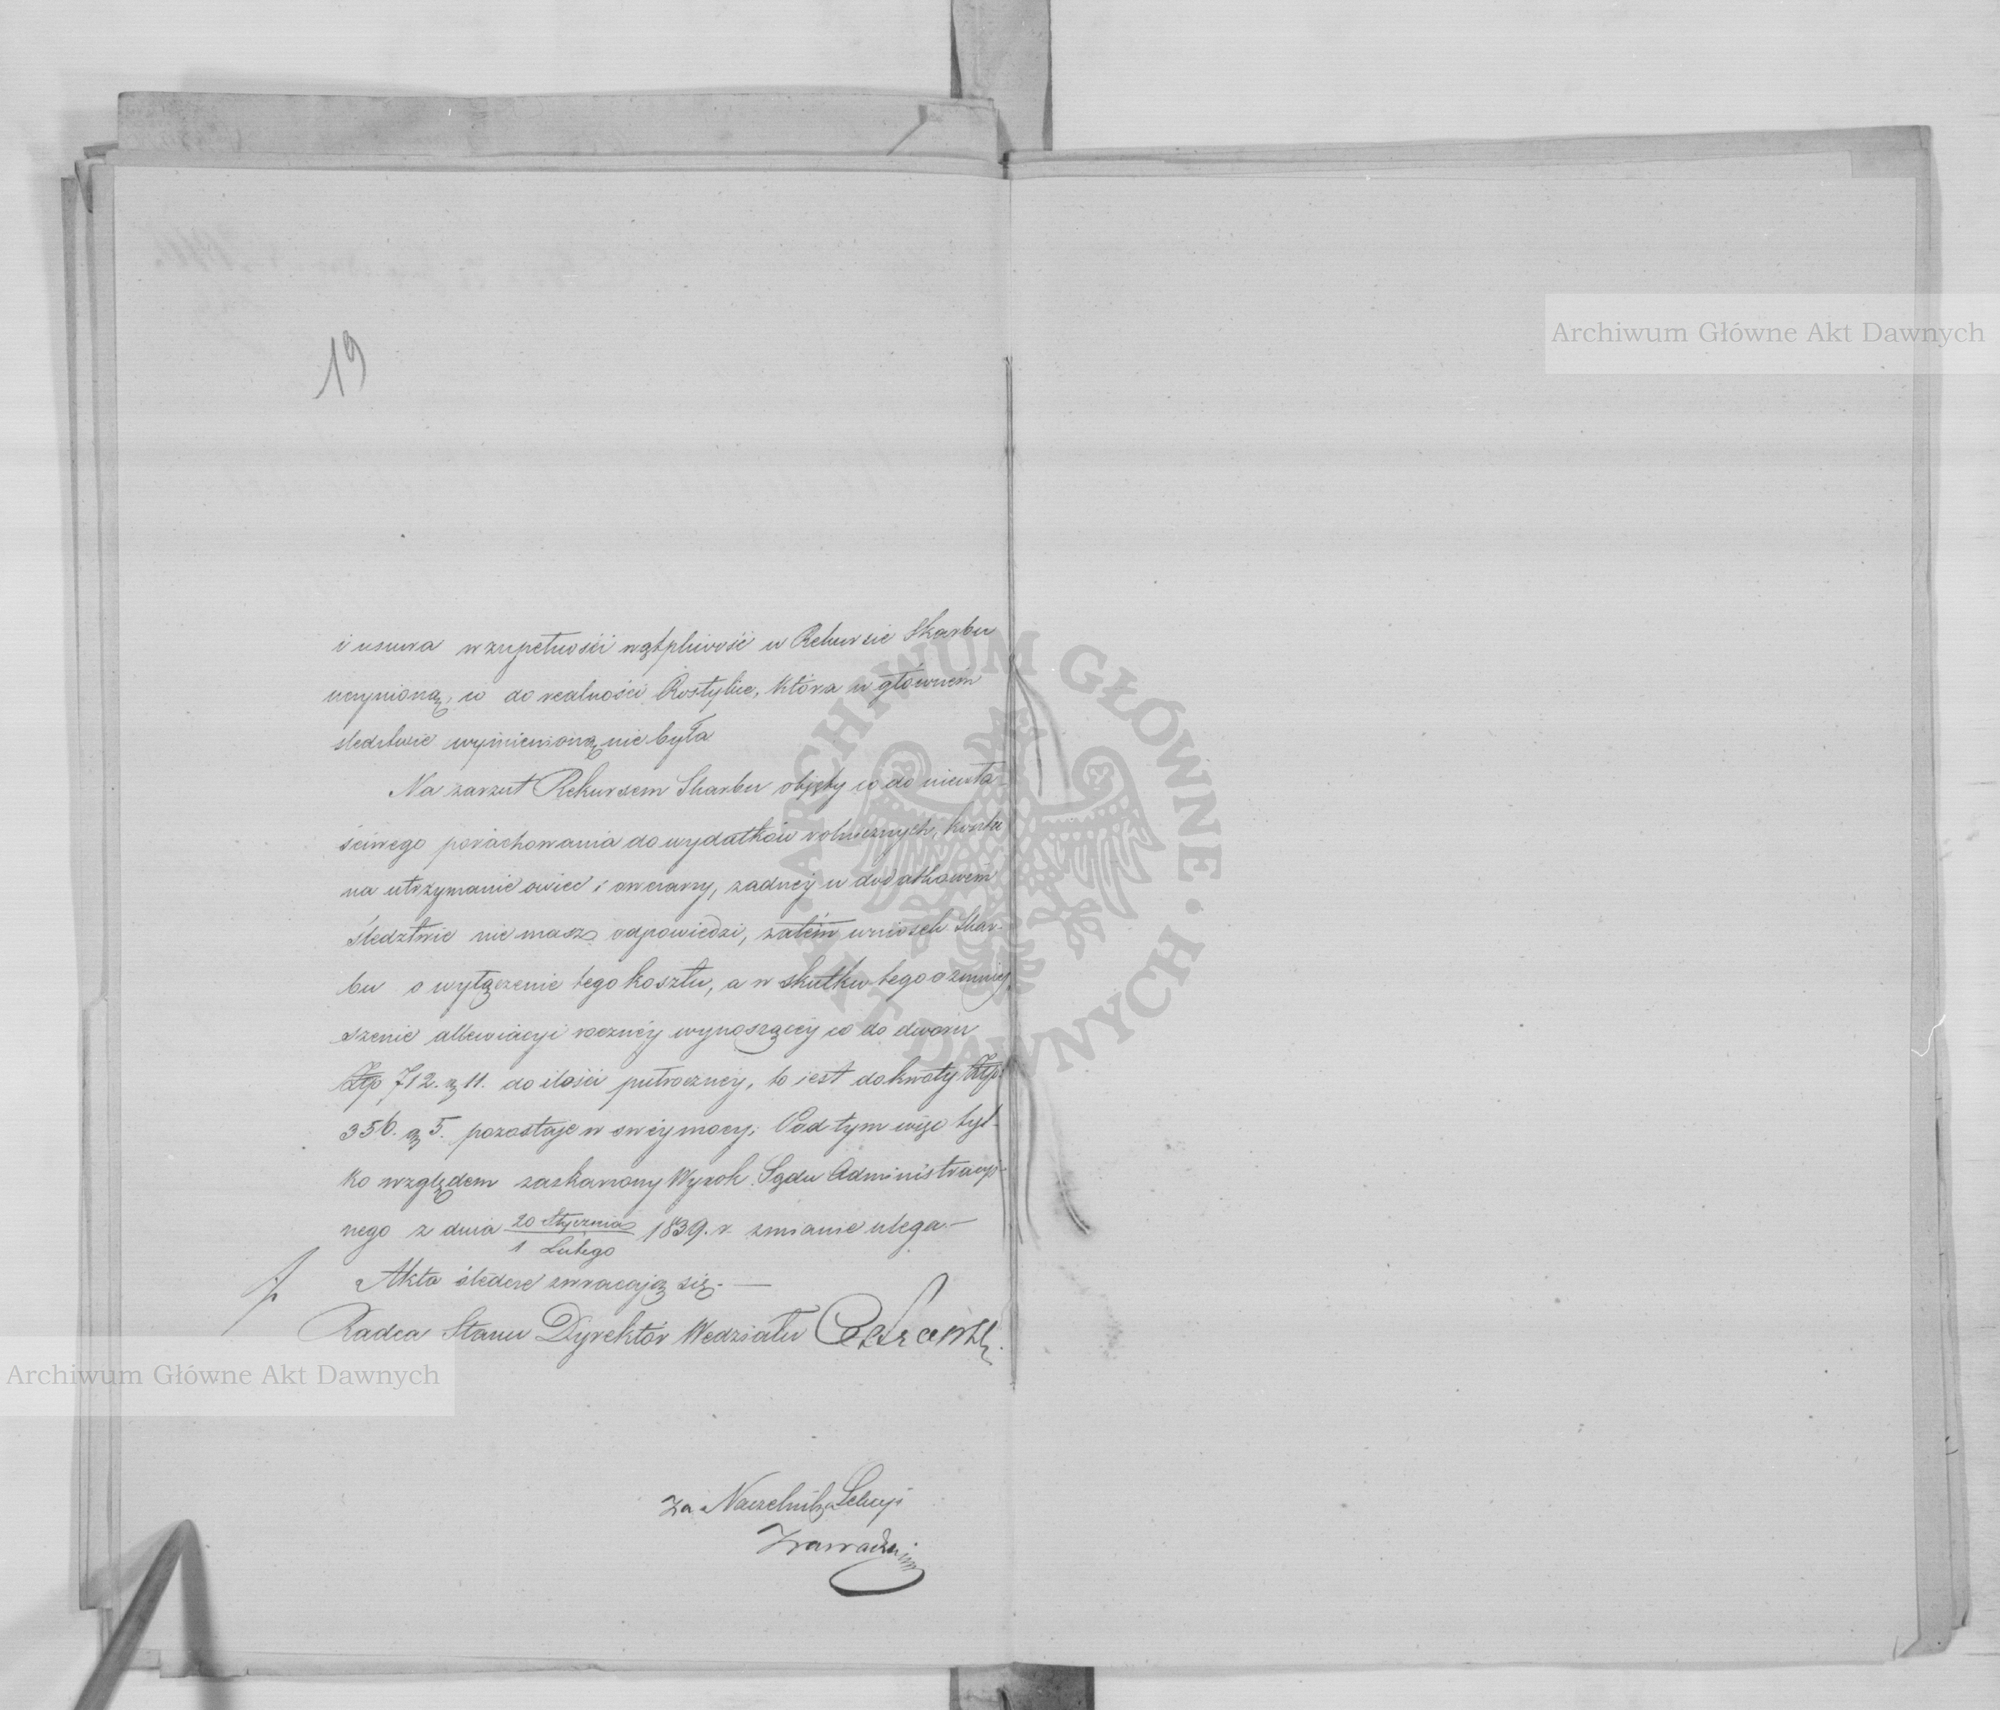 19
i usuwa w zupełności wątpliwość w Rekursie Skarbu
uczynioną, co do realności Rostylice, która w główném
śledztwie wymienioną nie była
Na zarzut Rekursem Skarbu objęty co do niewła-
ściwego porachowania do wydatków rolniczych, kosztu
na utrzymanie owiec i owczarzy, żadnej w dodatkowém
śledztwie nie masz odpowiedzi, zatém wniosek Skar-
bu o wyłączenie tego kosztu, a w skutku tego o zmniej-
szenie allewiacyi rocznéj wynoszącéj co do dworu
Złp 712. g 11. do ilości półrocznéj, to jest do kwoty Złp.
356. g 5. pozostaje w swéj mocy; Pod tym więc tyl-
ko względem zaskarżony Wyrok Sądu Administracyj-
nego z dnia 20 Stycznia / 1 Lutego 1839. r. zmianie ulega.—
Akta śledcze zwracają się.—
Radca Stanu Dyrektor Wydziału
Za Naczelnika Sekcyi
Archiwum Główne Akt Dawnych
Archiwum Główne Akt Dawnych
ARCHIWUM GŁÓWNE AKT DAWNYCH